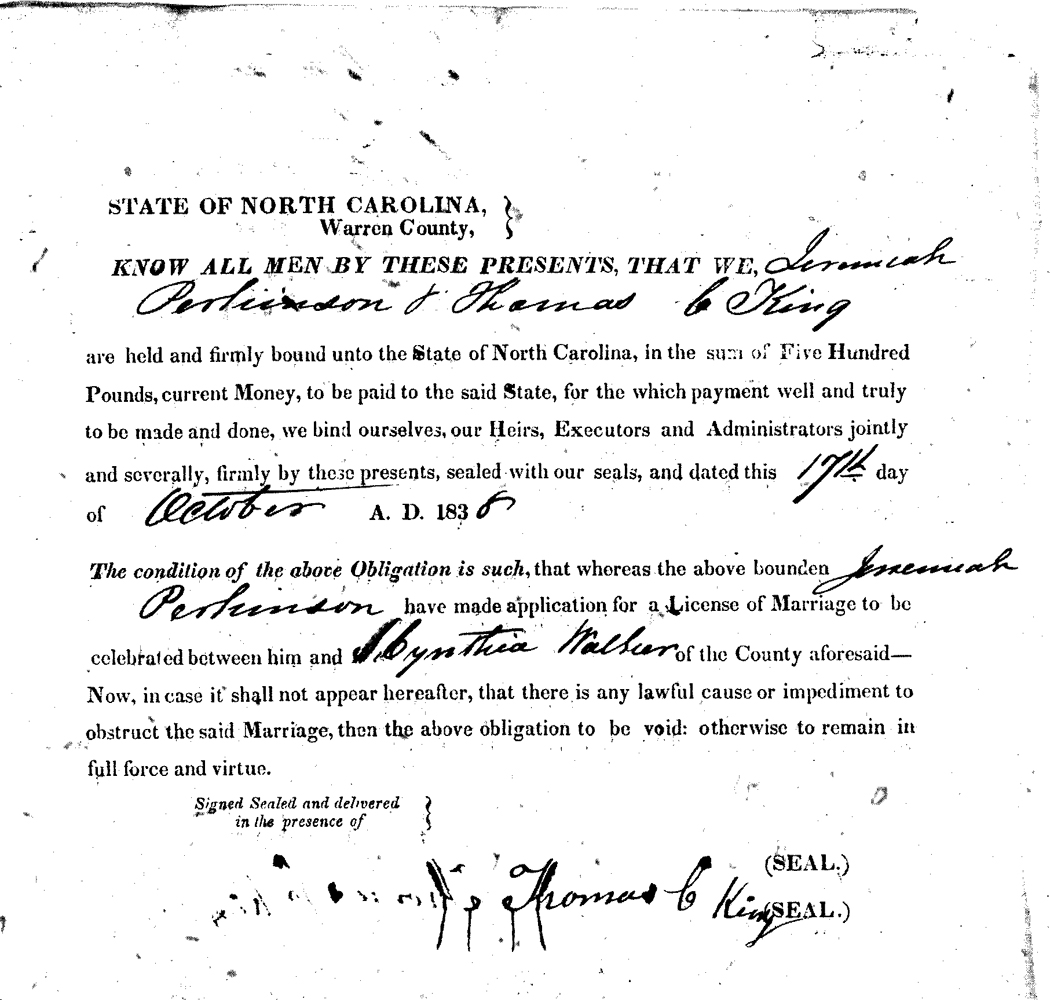 STATE OF NORTH CAROLINA,
Warren County,
KNOW ALL MEN BY THESE PRESENTS, THAT WE, Jeremiah
Perkinson & Thomas C King
are held and firmly bound unto the State of North Carolina, in the sum of Five Hundred
Pounds, current Money, to be paid to the said State, for the which payment well and truly
to be made and done, we bind ourselves, our Heirs, Executors and Administrators jointly
and severally, firmly by these presents, sealed with our seals, and dated this 17th day
of October A. D. 1838
The condition of the above Obligation is such, that whereas the above bounden Jeremiah
Perkinson have made application for a License of Marriage to be
celebrated between him and Cynthia Walker of the County aforesaid—
Now, in case it shall not appear hereafter, that there is any lawful cause or impediment to
obstruct the said Marriage, then the above obligation to be void: otherwise to remain in
full force and virtue.
Signed Sealed and delivered
in the presence of
(SEAL.)
Thomas C King (SEAL.)